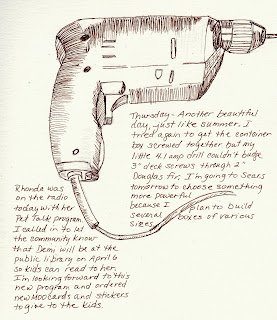 Thursday - Another beautiful
day, just like summer. I
tried again to get the container
box screwed together but my
little 4.1 amp drill couldn't budge
3" deck screws through 2"
Douglas fir. I'm going to Sears
tomorrow to choose something
more powerful
because I plan to build
several boxes of various
sizes
Rhonda was
on the radio
today with her
Pet Talk program.
I called in to let
the community know
that Demi will be at the
public library on April 6
so kids can read to her.
I'm looking forward to this
new program and ordered
new MOO cards and stickers
to give to the kids.